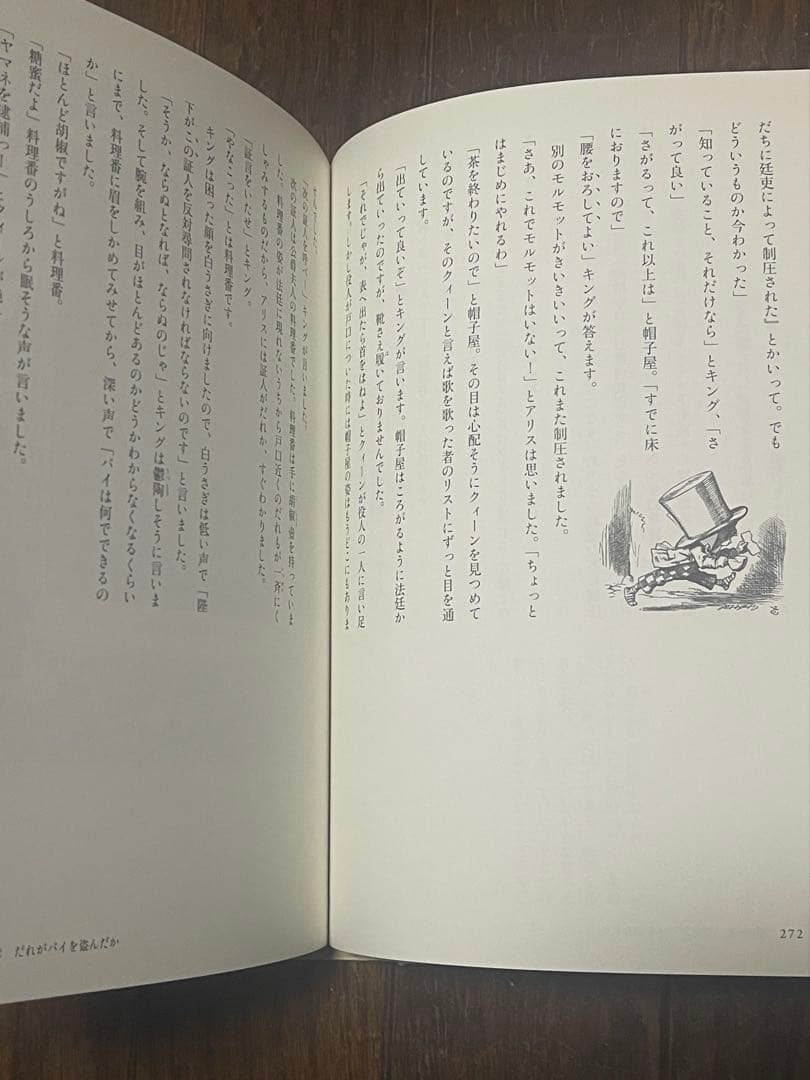 だちに廷吏によって制圧された』とかいって。でも
どういうものか今わかった」
「知っていること、それだけなら」とキング、「さ
がって良い」
「さがるって、これ以上は」と帽子屋。「すでに床
におりますので」
「腰をおろしてよい」キングが答えます。
別のモルモットがきいきいいって、これまた制圧されました。
「さあ、これでモルモットはいない！」とアリスは思いました。「ちょっと
はましにやれるわ」
「茶を終わりたいので」と帽子屋。その目は心配そうにクィーンを見つめて
いるのですが、そのクィーンと言えば歌を歌った者のリストにずっと目を通
しています。
「出ていって良いぞ」とキングが言います。帽子屋はころがるように法廷か
ら出ていったのですが、靴さえ履いておりませんでした。
「それでじゃが、表へ出たら首をはねよ」とクィーンが役人の一人に言い足
します。しかし役人が戸口についた時には帽子屋の姿はもうどこにもありま
せんでした。
「次の証人を呼べ！」キングが言いました。
次の証人は公爵夫人の料理番でした。料理番は手に胡椒壺を持っていま
した。料理番の姿が法廷に現れないうちから戸口近くのだれもが一斉にく
しゃみするものだから、アリスには証人がだれか、すぐわかりました。
「証言をいたせ」とキング。
「やなこった」とは料理番です。
キングは困った顔を白うさぎに向けましたので、白うさぎは低い声で「陛
下がこの証人を反対尋問されなければならないのです」と言いました。
「そうか、ならぬとなれば、ならぬのじゃ」とキングは鬱陶しそうに言いま
した。そして腕を組み、目がほとんどあるのかどうかわからなくなるくらい
にまで、料理番に眉をしかめてみせてから、深い声で「パイは何でできるの
か」と言いました。
「ほとんど胡椒ですがね」と料理番。
「糖蜜だよ」料理番のうしろから眠そうな声が言いました。
「ヤマネを逮捕っ！」
272
だれがパイを盗んだか